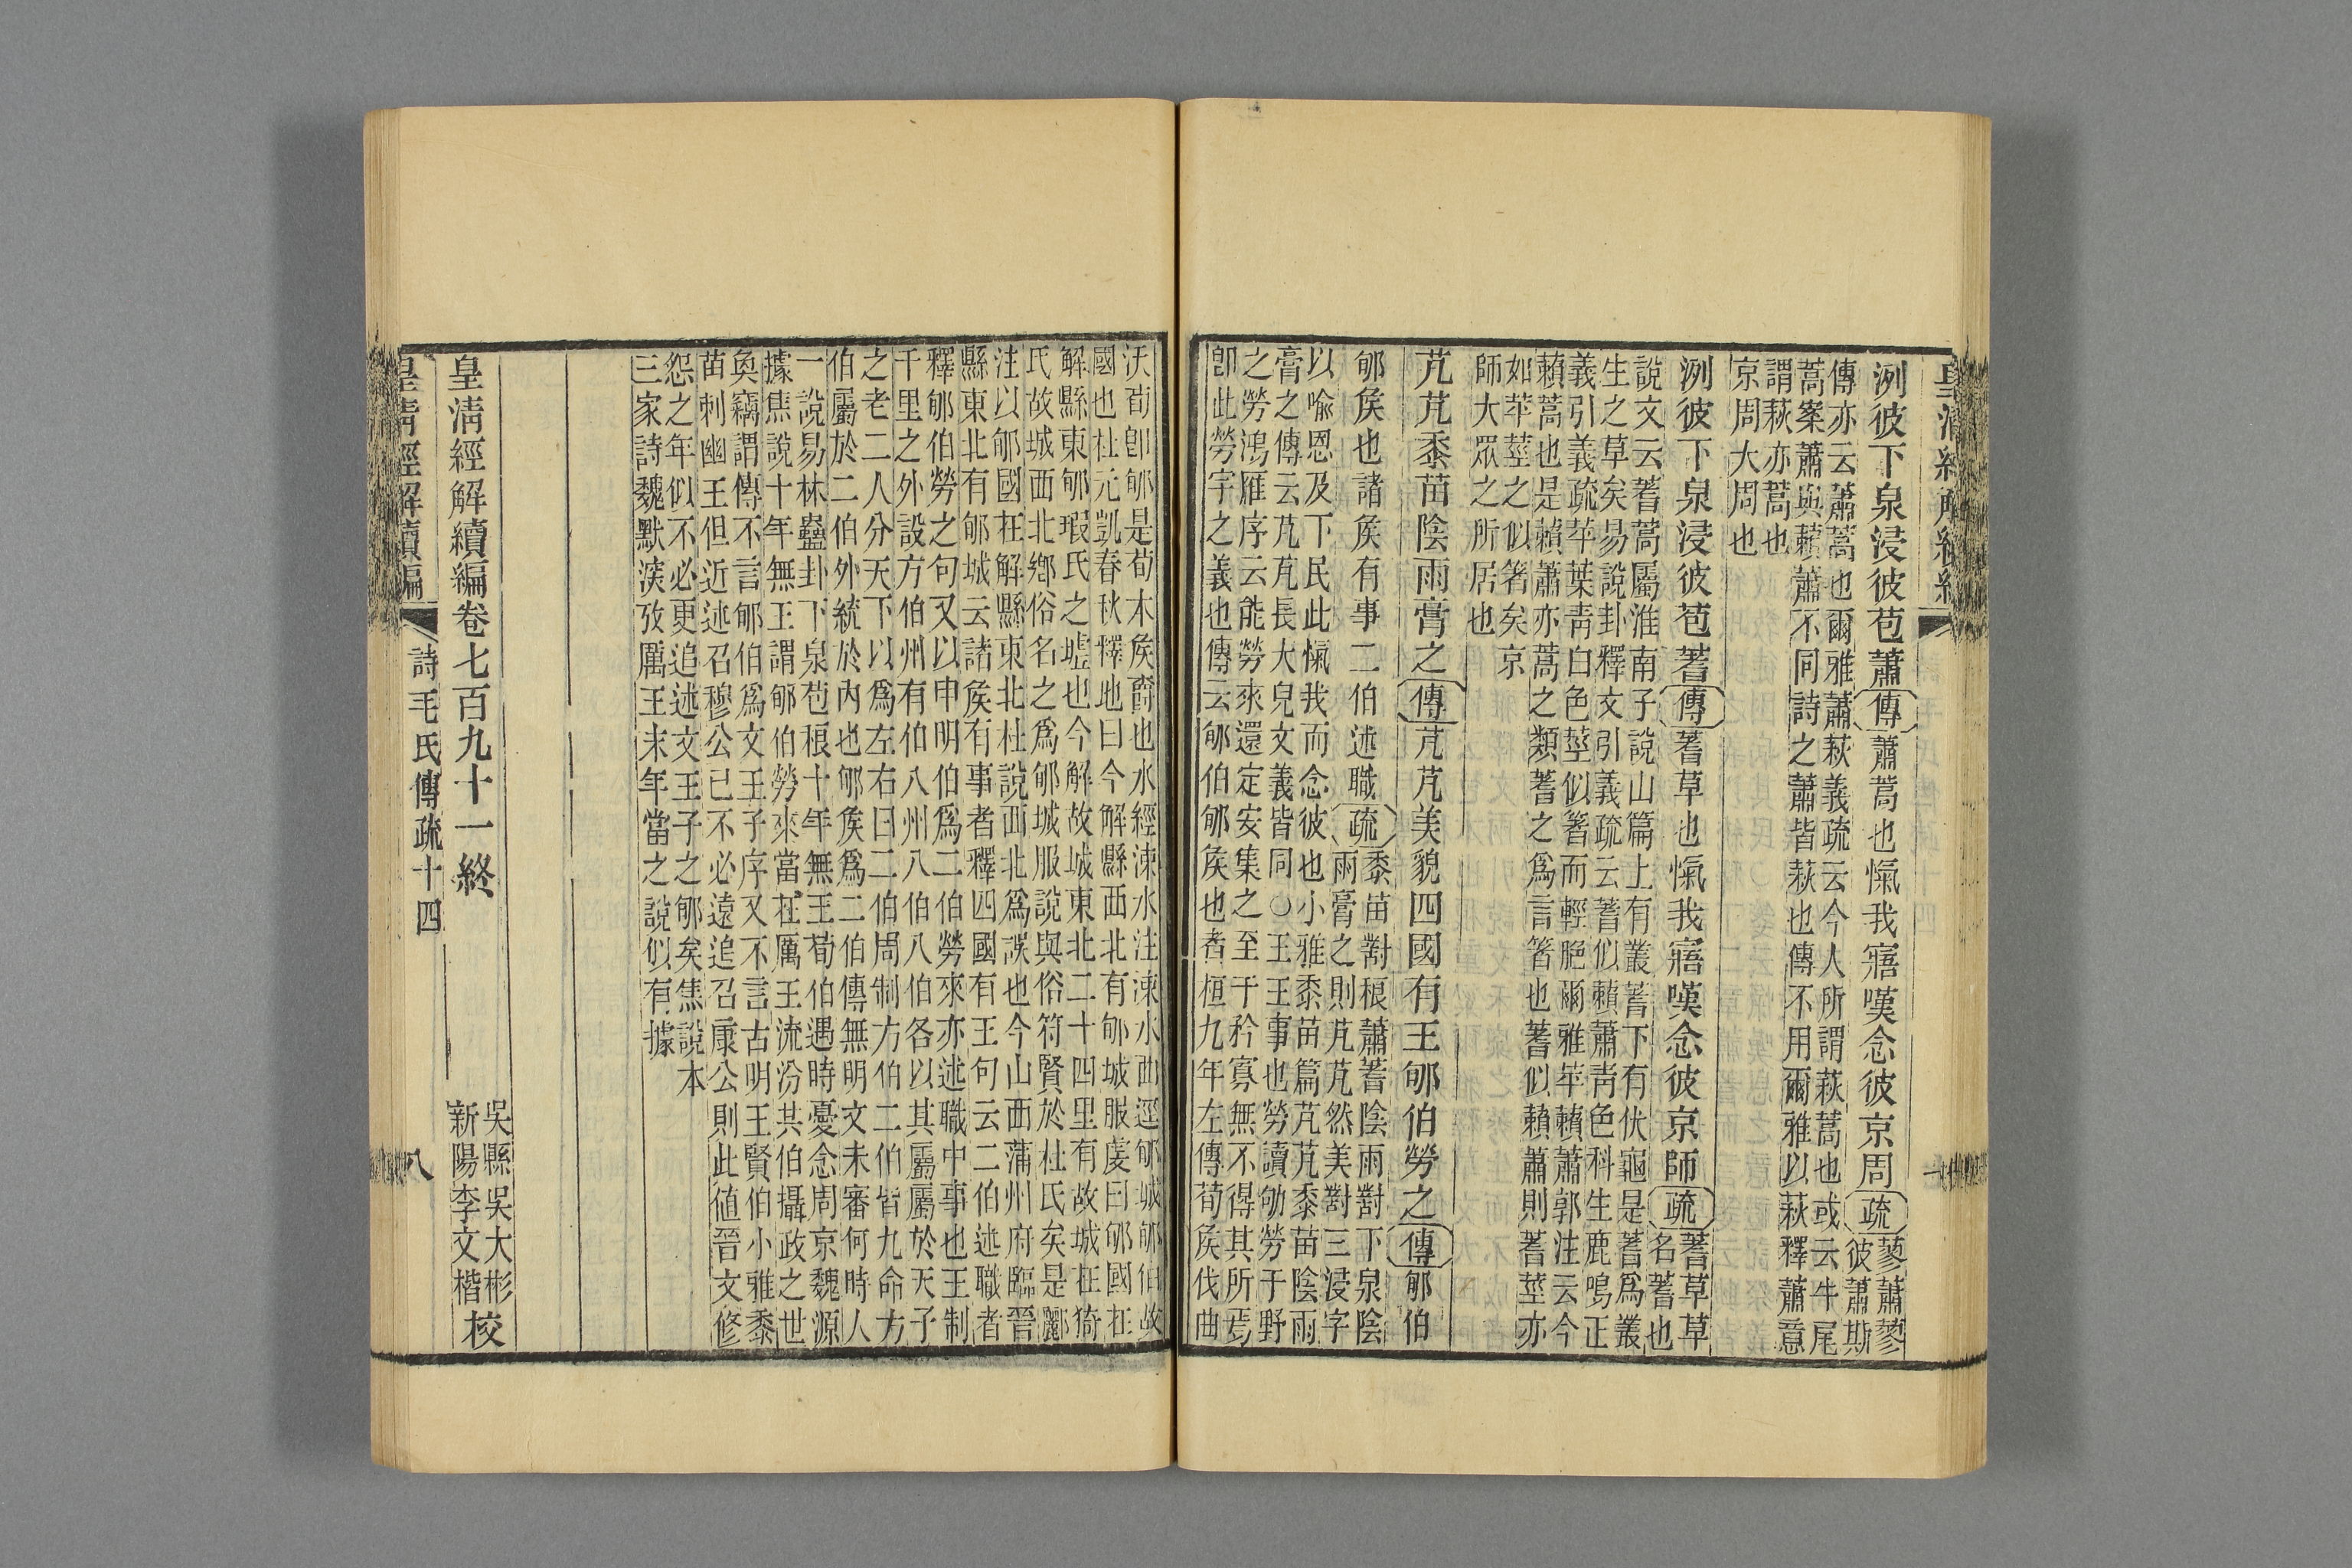 洌彼下泉浸彼苞蕭傳蕭蒿也愾我寤嘆念彼京周疏蓼蕭蓼
彼蕭斯
傳亦云蕭蒿也爾雅蕭萩義疏云今人所謂萩蒿也或云牛尾
蒿案蕭與藾蕭不同詩之蕭皆萩也傳不用爾雅以萩釋蕭意
謂萩亦蒿也
京周大周也
洌彼下泉浸彼苞蓍傳蓍草也愾我寤嘆念彼京師疏蓍草草
名蓍也
說文云蓍蒿屬淮南子說山篇上有叢蓍下有伏龜是蓍爲叢
生之草矣易說卦釋文引義疏云蓍似藾蕭靑色科生鹿鳴正
義引義疏苹葉靑白色莖似箸而輕脆爾雅苹藾蕭郭注云今
藾蒿也是藾蕭亦蒿之類蓍之爲言箸也蓍似藾蕭則蓍莖亦
如苹莖之似箸矣京
師大眾之所居也
芃芃黍苗陰雨膏之傳芃芃美貌四國有王郇伯勞之傳郇伯
郇矦也諸矦有事二伯述職疏黍苗對稂蕭蓍陰雨對下泉陰
雨膏之則芃芃然美對三浸字
以喻恩及下民此愾我而念彼也小雅黍苗篇芃芃黍苗陰雨
膏之傳云芃芃長大皃文義皆同○王王事也勞讀劬勞于野
之勞鴻雁序云能勞來還定安集之至于矜寡無不得其所焉
卽此勞字之義也傳云郇伯郇矦也者桓九年左傳荀矦伐曲
沃荀卽郇是荀本矦爵也水經涑水注涑水西逕郇城郇伯故
國也杜元凱春秋釋地曰今解縣西北有郇城服虔曰郇國在
解縣東郇瑕氏之墟也今解故城東北二十四里有故城在猗
氏故城西北鄉俗名之爲郇城服說與俗符賢於杜氏矣是酈
注以郇國在解縣東北杜說西北爲誤也今山西蒲州府臨晉
縣東北有郇城云諸矦有事者釋四國有王句云二伯述職者
釋郇伯勞之句又以申明伯爲二伯勞來亦述職中事也王制
千里之外設方伯州有伯八州八伯八伯各以其屬屬於天子
之老二人分天下以爲左右曰二伯周制方伯二伯皆九命方
伯屬於二伯外統於內也郇矦爲二伯傳無明文未審何時人
一說易林蠱卦下泉苞稂十年無王荀伯遇時憂念周京魏源
據焦說十年無王謂郇伯勞來當在厲王流汾共伯攝政之世
奐竊謂傳不言郇伯爲文王子序又不言古明王賢伯小雅黍
苗刺幽王但近述召穆公已不必遠追召康公則此値晉文修
怨之年似不必更追述文王子之郇矣焦說本
三家詩魏默深攷厲王末年當之說似有據
皇淸經解續編卷七百九十一終
吳縣吳大彬
新陽李文楷校
皇淸經解續編
詩毛氏傳疏十四
八